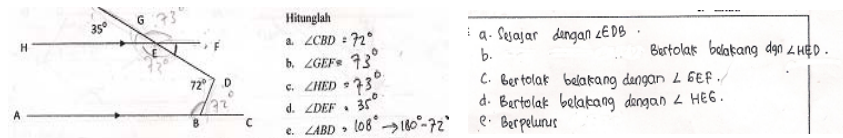 G 73°
35°
H
E
F
73°
72°
D
72°
A
B
C
Hitunglah
a. ∠CBD = 72°
b. ∠GEF = 73°
c. ∠HED = 73°
d. ∠DEF = 35°
e. ∠ABD = 108° → 180°-72°
a. Sejajar dengan ∠EDB.
b. Bertolak belakang dgn ∠HED.
c. Bertolak belakang dengan ∠ GEF.
d. Bertolak belakang dengan ∠ HEG.
e. Berpelurus